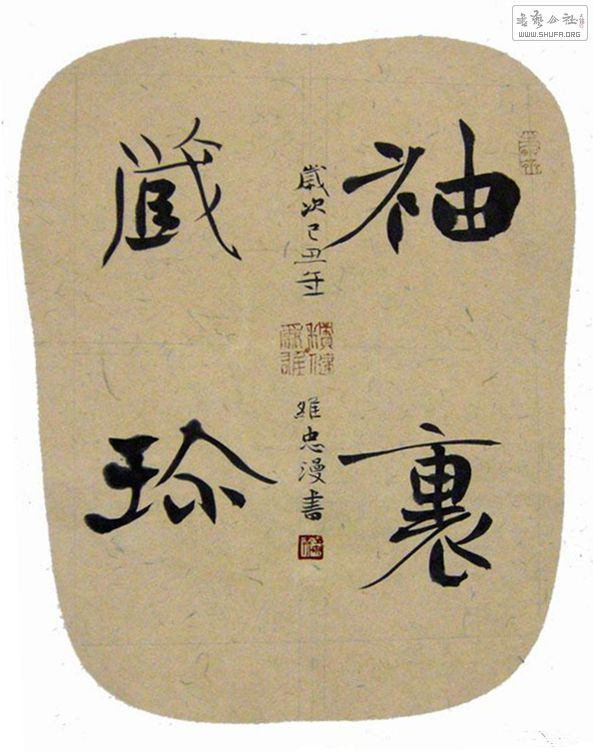 袖裏
藏珍
歲次己丑年
維忠漫書
书艺公社
WWW.SHUFA.ORG